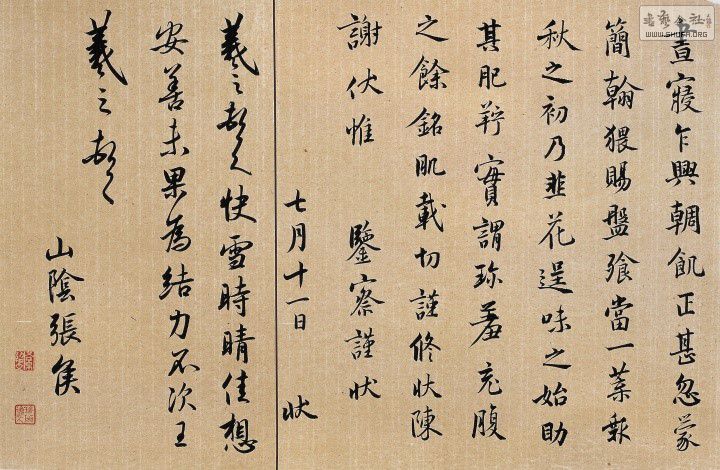 晝寢乍興輖飢正甚忽蒙
簡翰猥賜盤飱當一葉報
秋之初乃韭花逞味之始助
其肥羜實謂珍羞充腹
之餘銘肌載切謹修狀陳
謝伏惟 鑒察謹狀
七月十一日 狀
羲之頓首快雪時晴佳想
安善未果為結力不次王
羲之頓首
山陰張侯
WWW.SHUFA.ORG